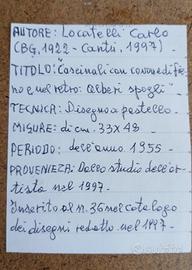 AUTORE: Locatelli Carlo
(BG, 1922 - Cantù, 1997) -
TITOLO: "Cascinali con covone di fie
no e nel retro: Alberi spogli" -
TECNICA: Disegno a pastello -
MISURE: di cm. 33x48 -
PERIODO: dell'anno 1955
PROVENIEZA: Dallo studio dell'ar-
tista nel 1997 -
Inserito al n. 36 nel catalogo
dei disegni redatto nel 1997 -